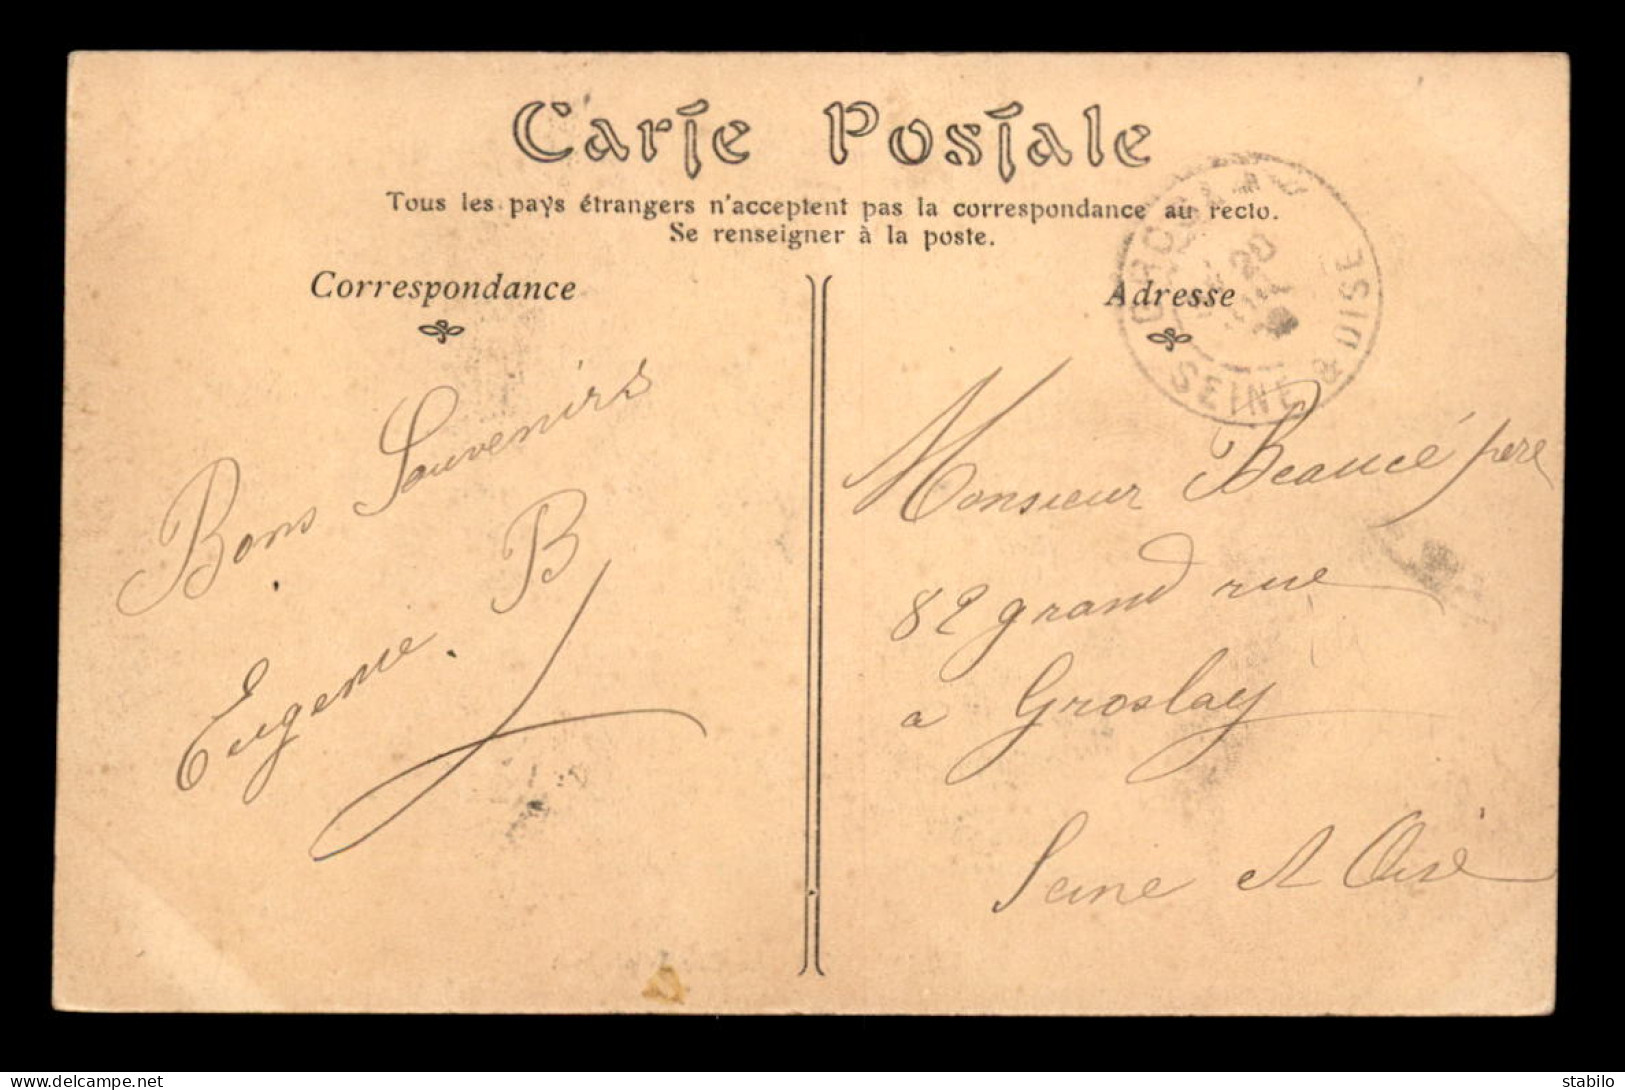 Carte Postale
Tous les pays étrangers n'acceptent pas la correspondance au recto.
Se renseigner à la poste.
Correspondance
Adresse
SEINE & OISE
20
Bons Souvenirs
Eugenie. B
Monsieur Beaucé père
82 grand rue
a Groslay
Seine et Oise
delcampe.net
stabilo